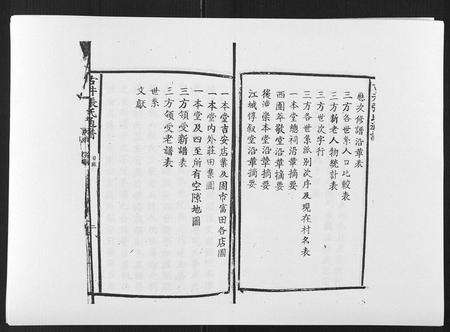 歷次修譜沿革表
三方各世系人口比較表
三方新老人物統計表
三方世次字行
三方各世系派別次序及現在村名表
一本堂總祠沿革摘要
西園年歡堂沿革摘要
後油崇本堂沿革摘要
江城得敘堂沿革摘要
一本堂吉安店業及圍市富田各店圖
一本堂內外莊田集圖
一本堂及四至所有空隙地圖
三方領受新譜表
三方領受老譜表
世系
文獻